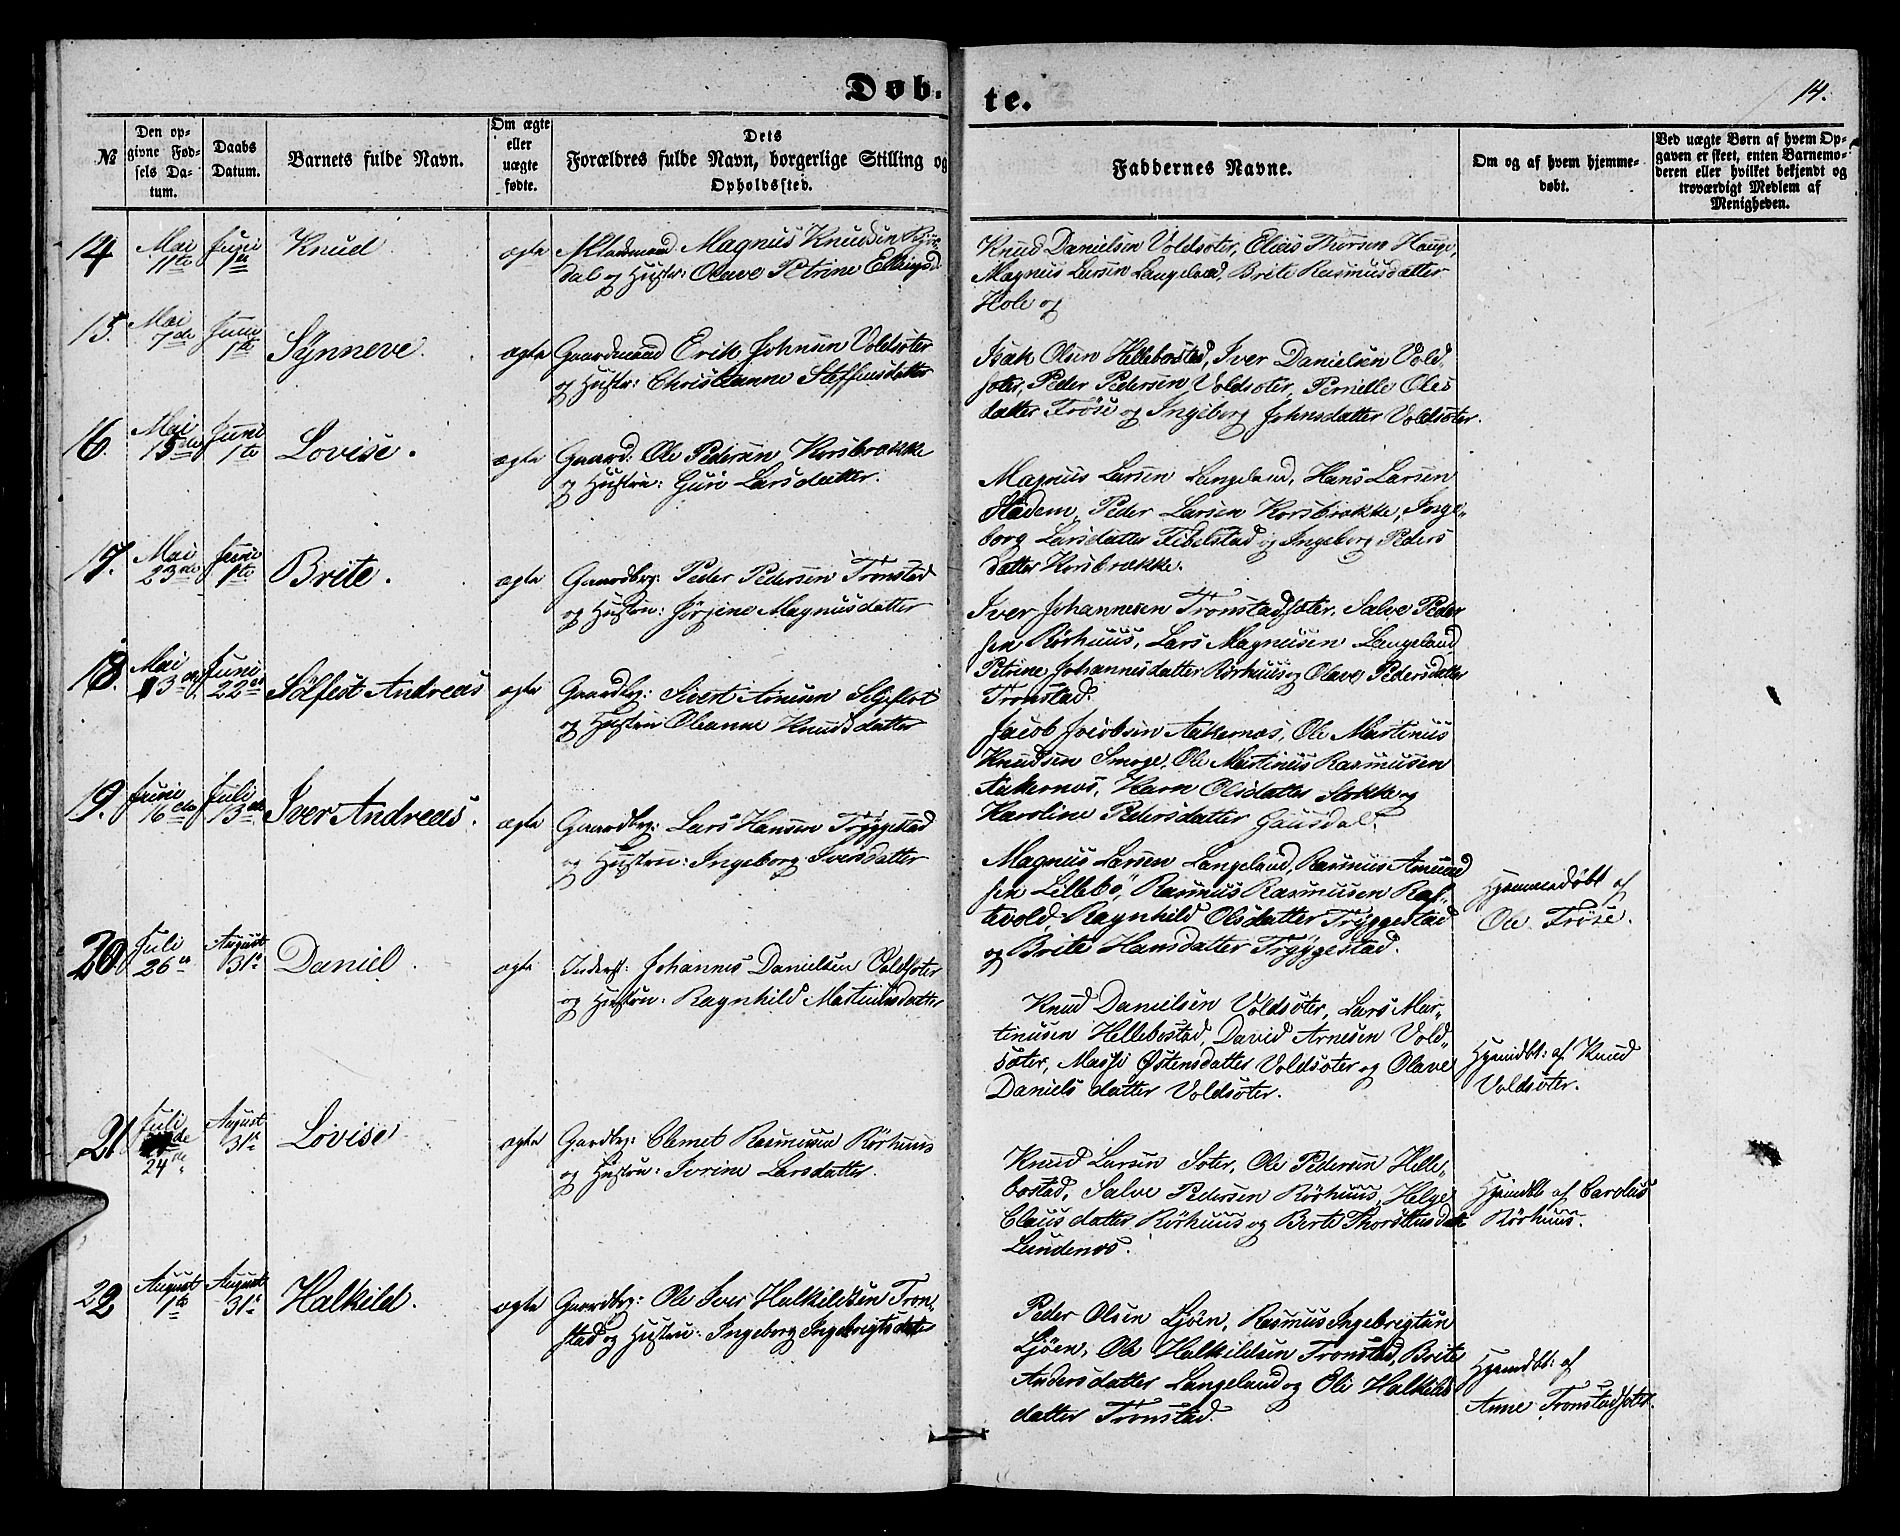 Døb-
te.
14.
№
Den op-
givne Fød-
sels Da-
tum.
Daabs
Datum.
Barnets fulde Navn.
Om ægte
eller
uægte
fødte.
Dets
Forældres fulde Navn, borgerlige Stilling og
Opholdssted.
Faddernes Navne.
Om og af hvem hjemme-
døbt.
Ved uægte Børn af hvem Op-
gaven er skeet, enten Barnemo-
deren eller hvilket bekjendt og
troværdigt Medlem af
Menigheden.
14
Mai
11te
Juni
1te
Knud
ægte
Magnus Knudsen
dal og Hustr: Olave Petrine
Knud Danielsen Voldsæter, Elias Thorsen Hauge,
Magnus Larsen Langeland, Brite Rasmusdatter
Hole og
15.
Mai
7de
Juni
1te
Synneve.
ægte
Gaardmand Erik Johnsen Voldsæter
og Hustr: Christianne Steffensdatter
Isak Olsen Hellebostad, Iver Danielsen Vold-
sæter, Peder Pedersen Voldsæter, Pernille Ols
datter Frøse og Ingeborg Johnsdatter Voldsæter.
16.
Mai
15de
Juni
1te
Lovise.
ægte
Gaard: Ole Pedersen Korsbrække
og Hustru: Guri Larsdatter.
Magnus Larsen Langeland, Hans Larsen
Stadem, Peder Larsen Korsbrække, Inge-
borg Larsdatter Fibelstad og Ingeborg Peders
datter Korsbrække.
17.
Mai
23de
Juni
1te
Brite.
ægte
Gaardbrg: Peder Pedersen Tronstad
og Hustru: Jørgine Magnusdatter
Iver Johannesen Tronstadsæter, Salve Peder
sen Rørhuus, Lars Magnusen Langeland
Petrine Johannesdatter Rørhuus og Olave Pedersdatter
Tronstad.
18.
Mai
13de
Juni
22de
Sølfest Andreas
ægte
Gaardbrg: Sivert Arnesen Seljeflot
og Hustru Oleanne Knudsdatter
Jacob Jacobsen Aakernæs, Ole Martinus
Knudsen Smoge, Ole Martinus Rasmusen
Aakernæs, Karn Olsdatter Stokke og
Karoline Pedersdatter Gausdal.
19.
Juni
16de
Juli
13de
Iver Andreas.
ægte
Gaardbrg: Lars Hansen Tryggestad
og Hustru: Ingeborg Iversdatter
Magnus Larsen Langeland, Rasmus Amund
sen Lillebø, Rasmus Rasmusen Raf-
tevold, Ragnhild Olsdatter Tryggestad
og Brite Hansdatter Tryggestad.
Hjemmedøbt af
Ole Frøse.
20.
Juli
26de
August
31te
Daniel.
ægte
Inderst: Johannes Danielsen Voldsæter
og Hustru: Ragnhild Martinusdatter
Knud Danielsen Voldsæter, Lars Mar-
tinusen Hellebostad, David Arnesen Vold-
sæter, Massi Østensdatter Voldsæter og Olave
Daniels datter Voldsæter.
Hjemdbt: af Knud
Voldsæter.
21
Juli
24de
August
31te
Lovise
ægte
Gardbrg: Clemet Rasmusen Rørhuus
og Hustru: Ivrine Larsdatter.
Knud Larsen Sæter, Ole Pedersen Helle-
bostad, Salve Pedersen Rørhuus, Helge
Claus datter Rørhuus og Berte
Lundenæs.
Hjemdbt af Carolus
Rørhuus.
22
August
1te
August
31te
Halkild.
ægte
Gaardbrg: Ole Iver Halkildsen Tron-
stad og Hustru: Ingeborg Ingebrigtsdatter
Peder Olsen Ljøen, Rasmus Ingebrigtsen
Ljøen, Ole Halkildsen Tronstad, Brite
Andersdatter Langeland og Eli Halkilds
datter Tronstad.
Hjemdbt: af
Anne Tronstadsæter.